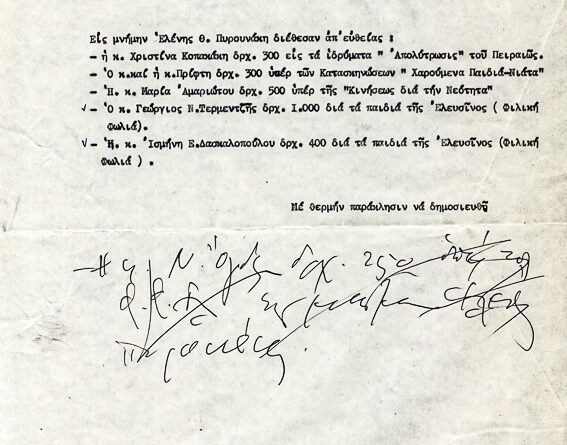 Εἰς μνήμην Ἑλένης Θ. Πυρουνάκη διέθεσαν ἀπ'εὐθείας :
- ἡ κ. Χριστίνα Κοπακάκη δρχ. 300 εἰς τά ἱδρύματα " Ἀπολύτρωσις" τοῦ Πειραιῶς.
- Ὁ κ.καί ἡ κ.Πρίφτη δρχ. 300 ὑπέρ τῶν Κατασκηνώσεων " Χαρούμενα Παιδιά-Νιάτα"
- Ἡ. κ. Μαρία Ἀμαριώτου δρχ. 500 ὑπέρ τῆς "Κινήσεως διά τήν Νεότητα"
✓ - Ὁ κ. Γεώργιος Ν.Τερμεντζῆς δρχ. 1.000 διά τά παιδιά τῆς Ἐλευσῖνος ( Φιλική
Φωλιά).
✓ - Ἡ. κ. Ἰσμήνη Ε.Δασκαλοπούλου δρχ. 400 διά τά παιδιά τῆς Ἐλευσῖνος (Φιλική
Φωλιά ) .
Μέ θερμήν παράκλησιν νά δημοσιευθῇ
- Η κ. Ν. δρχ. 250
εις μνήμην Ελένης
Πυρουνάκη.